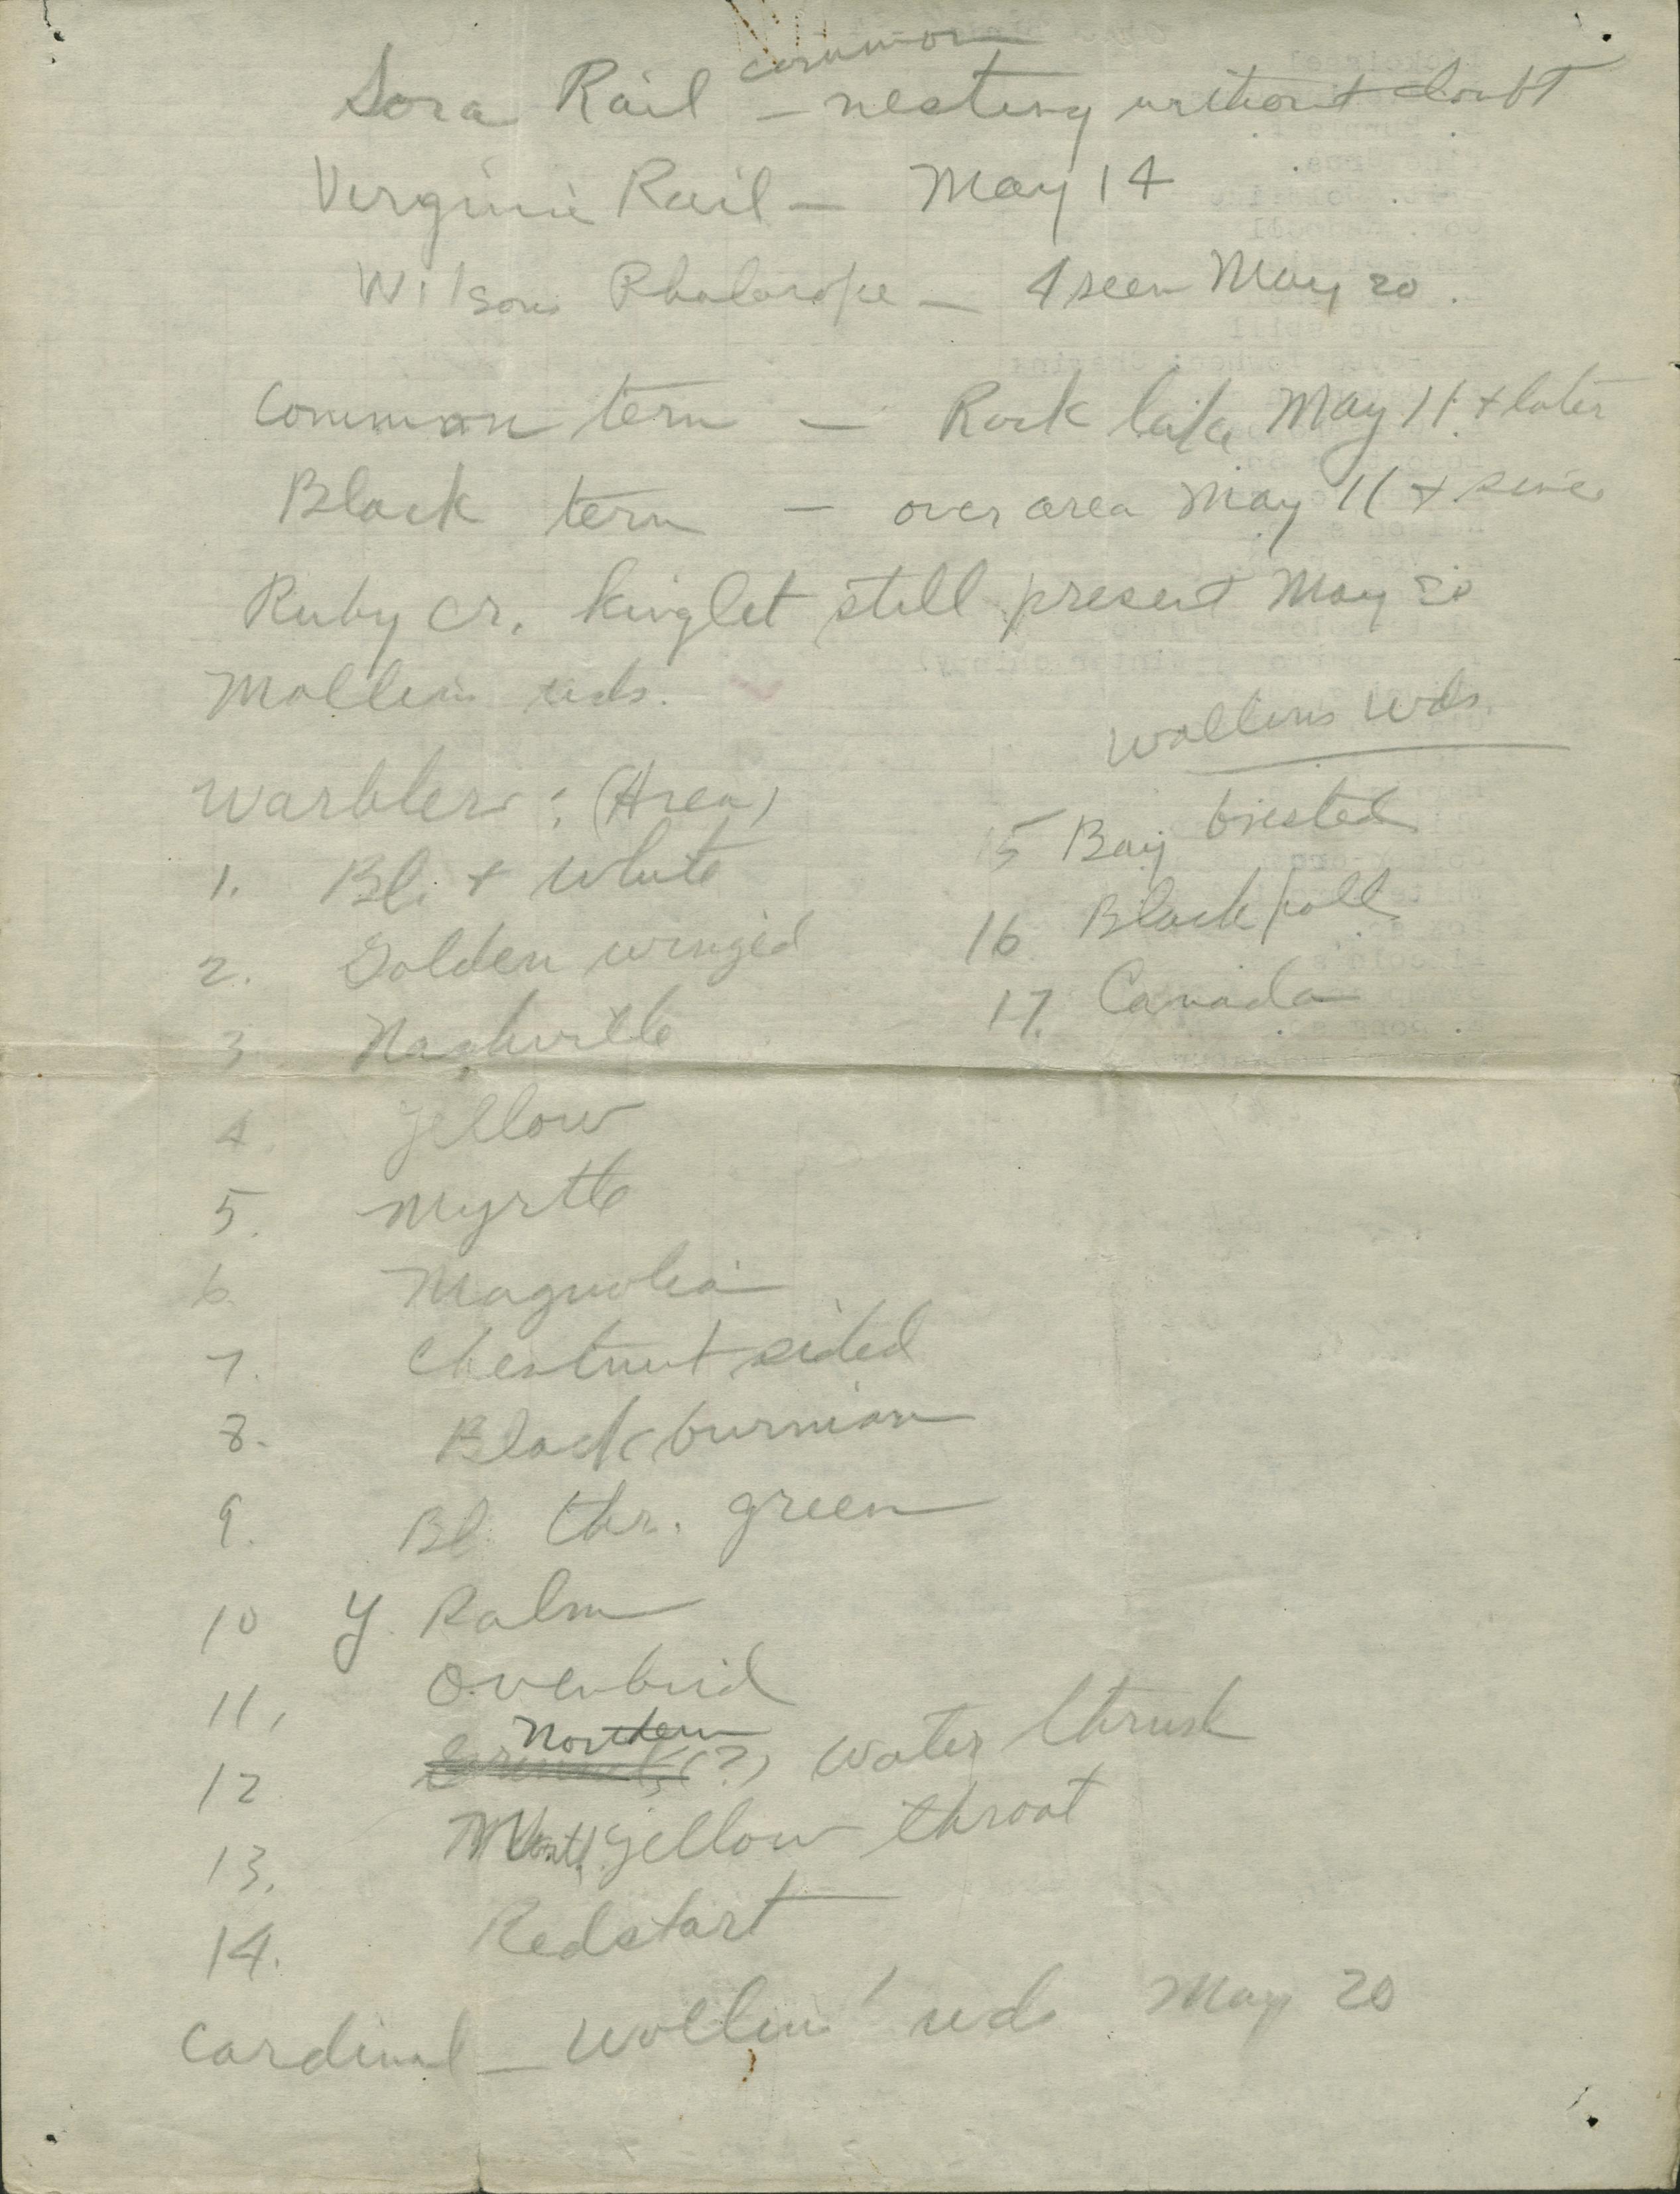 common
Sora Rail – nesting without doubt
Virginia Rail – May 14
Wilsons Phalarope – 4 seen May 20.
Common tern – Rock lake May 11 + later
Black tern – over area May 11 + since
Ruby cr. kinglet still present May 20
wds.
Warblers: (Area)
1. Bl. + White
2. Golden winged
3 Nashville
4. Yellow
5. Myrtle
6. Magnolia
7. Chestnut sided
8. Blackburnian
9. Bl. thr. green
10 Y. Palm
11, Ovenbird
Northern
12 (?) Water thrush
13. yellow throat
14. Redstart
Wollins Wds.
15 Bay brested
16 Black poll
17. Canada
Cardinal – Wollins' wds May 20